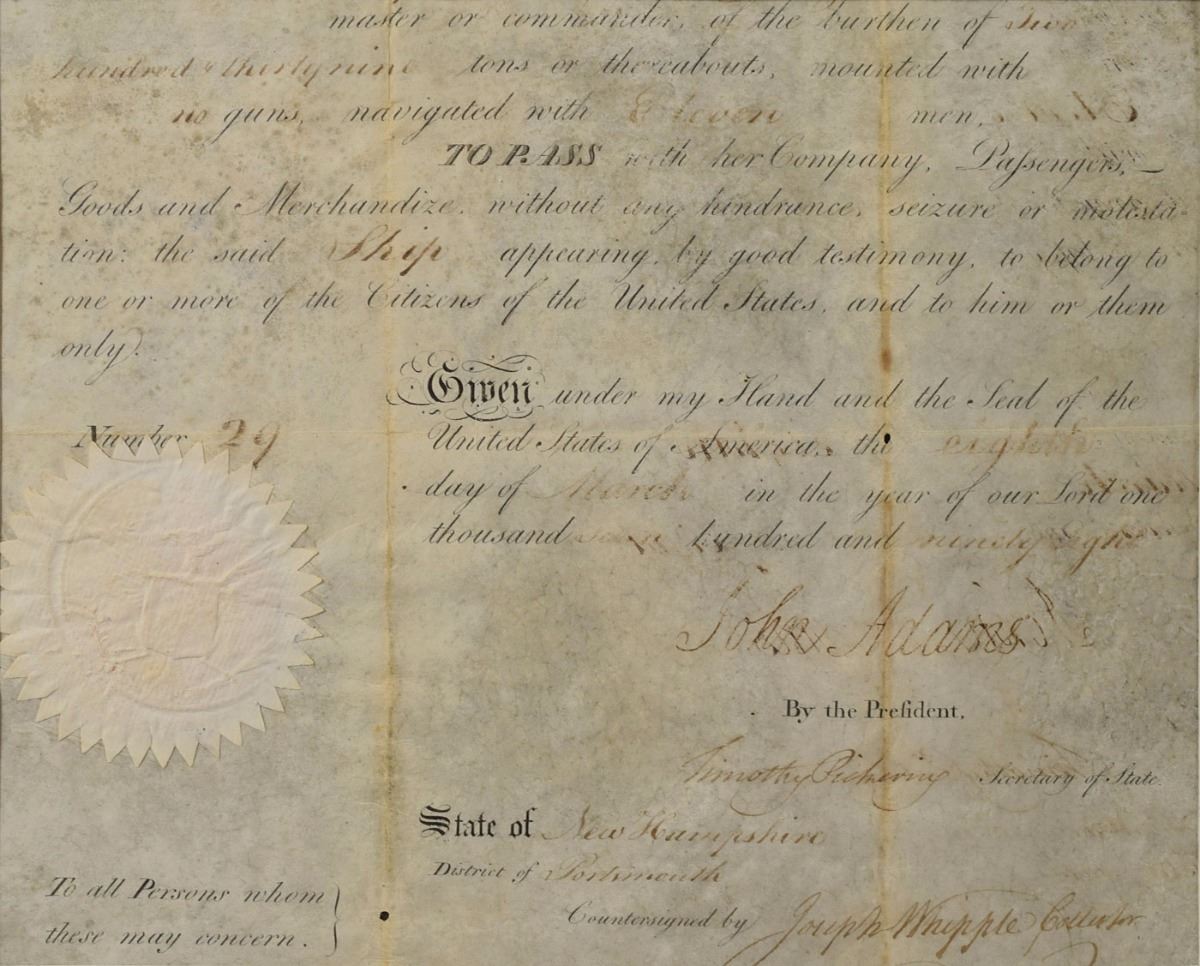 master or commander, of the burthen of Two
hundred & thirty nine tons or thereabouts, mounted with
no guns, navigated with Eleven men,
TO PASS with her Company, Paſsengers,
Goods and Merchandize, without any hindrance, seizure or molesta-
tion: the said Ship appearing, by good testimony, to belong to
one or more of the Citizens of the United States, and to him or them
only.
Given under my Hand and the Seal of the
Number 29 United States of America, the eighth
day of March in the year of our Lord one
thousand hundred and ninety eight
John Adams
By the Preſident,
Timothy Pickering Secretary of State.
State of New Hampshire
District of Portsmouth
To all Persons whom
these may concern.
Countersigned by Joseph Whipple Collector